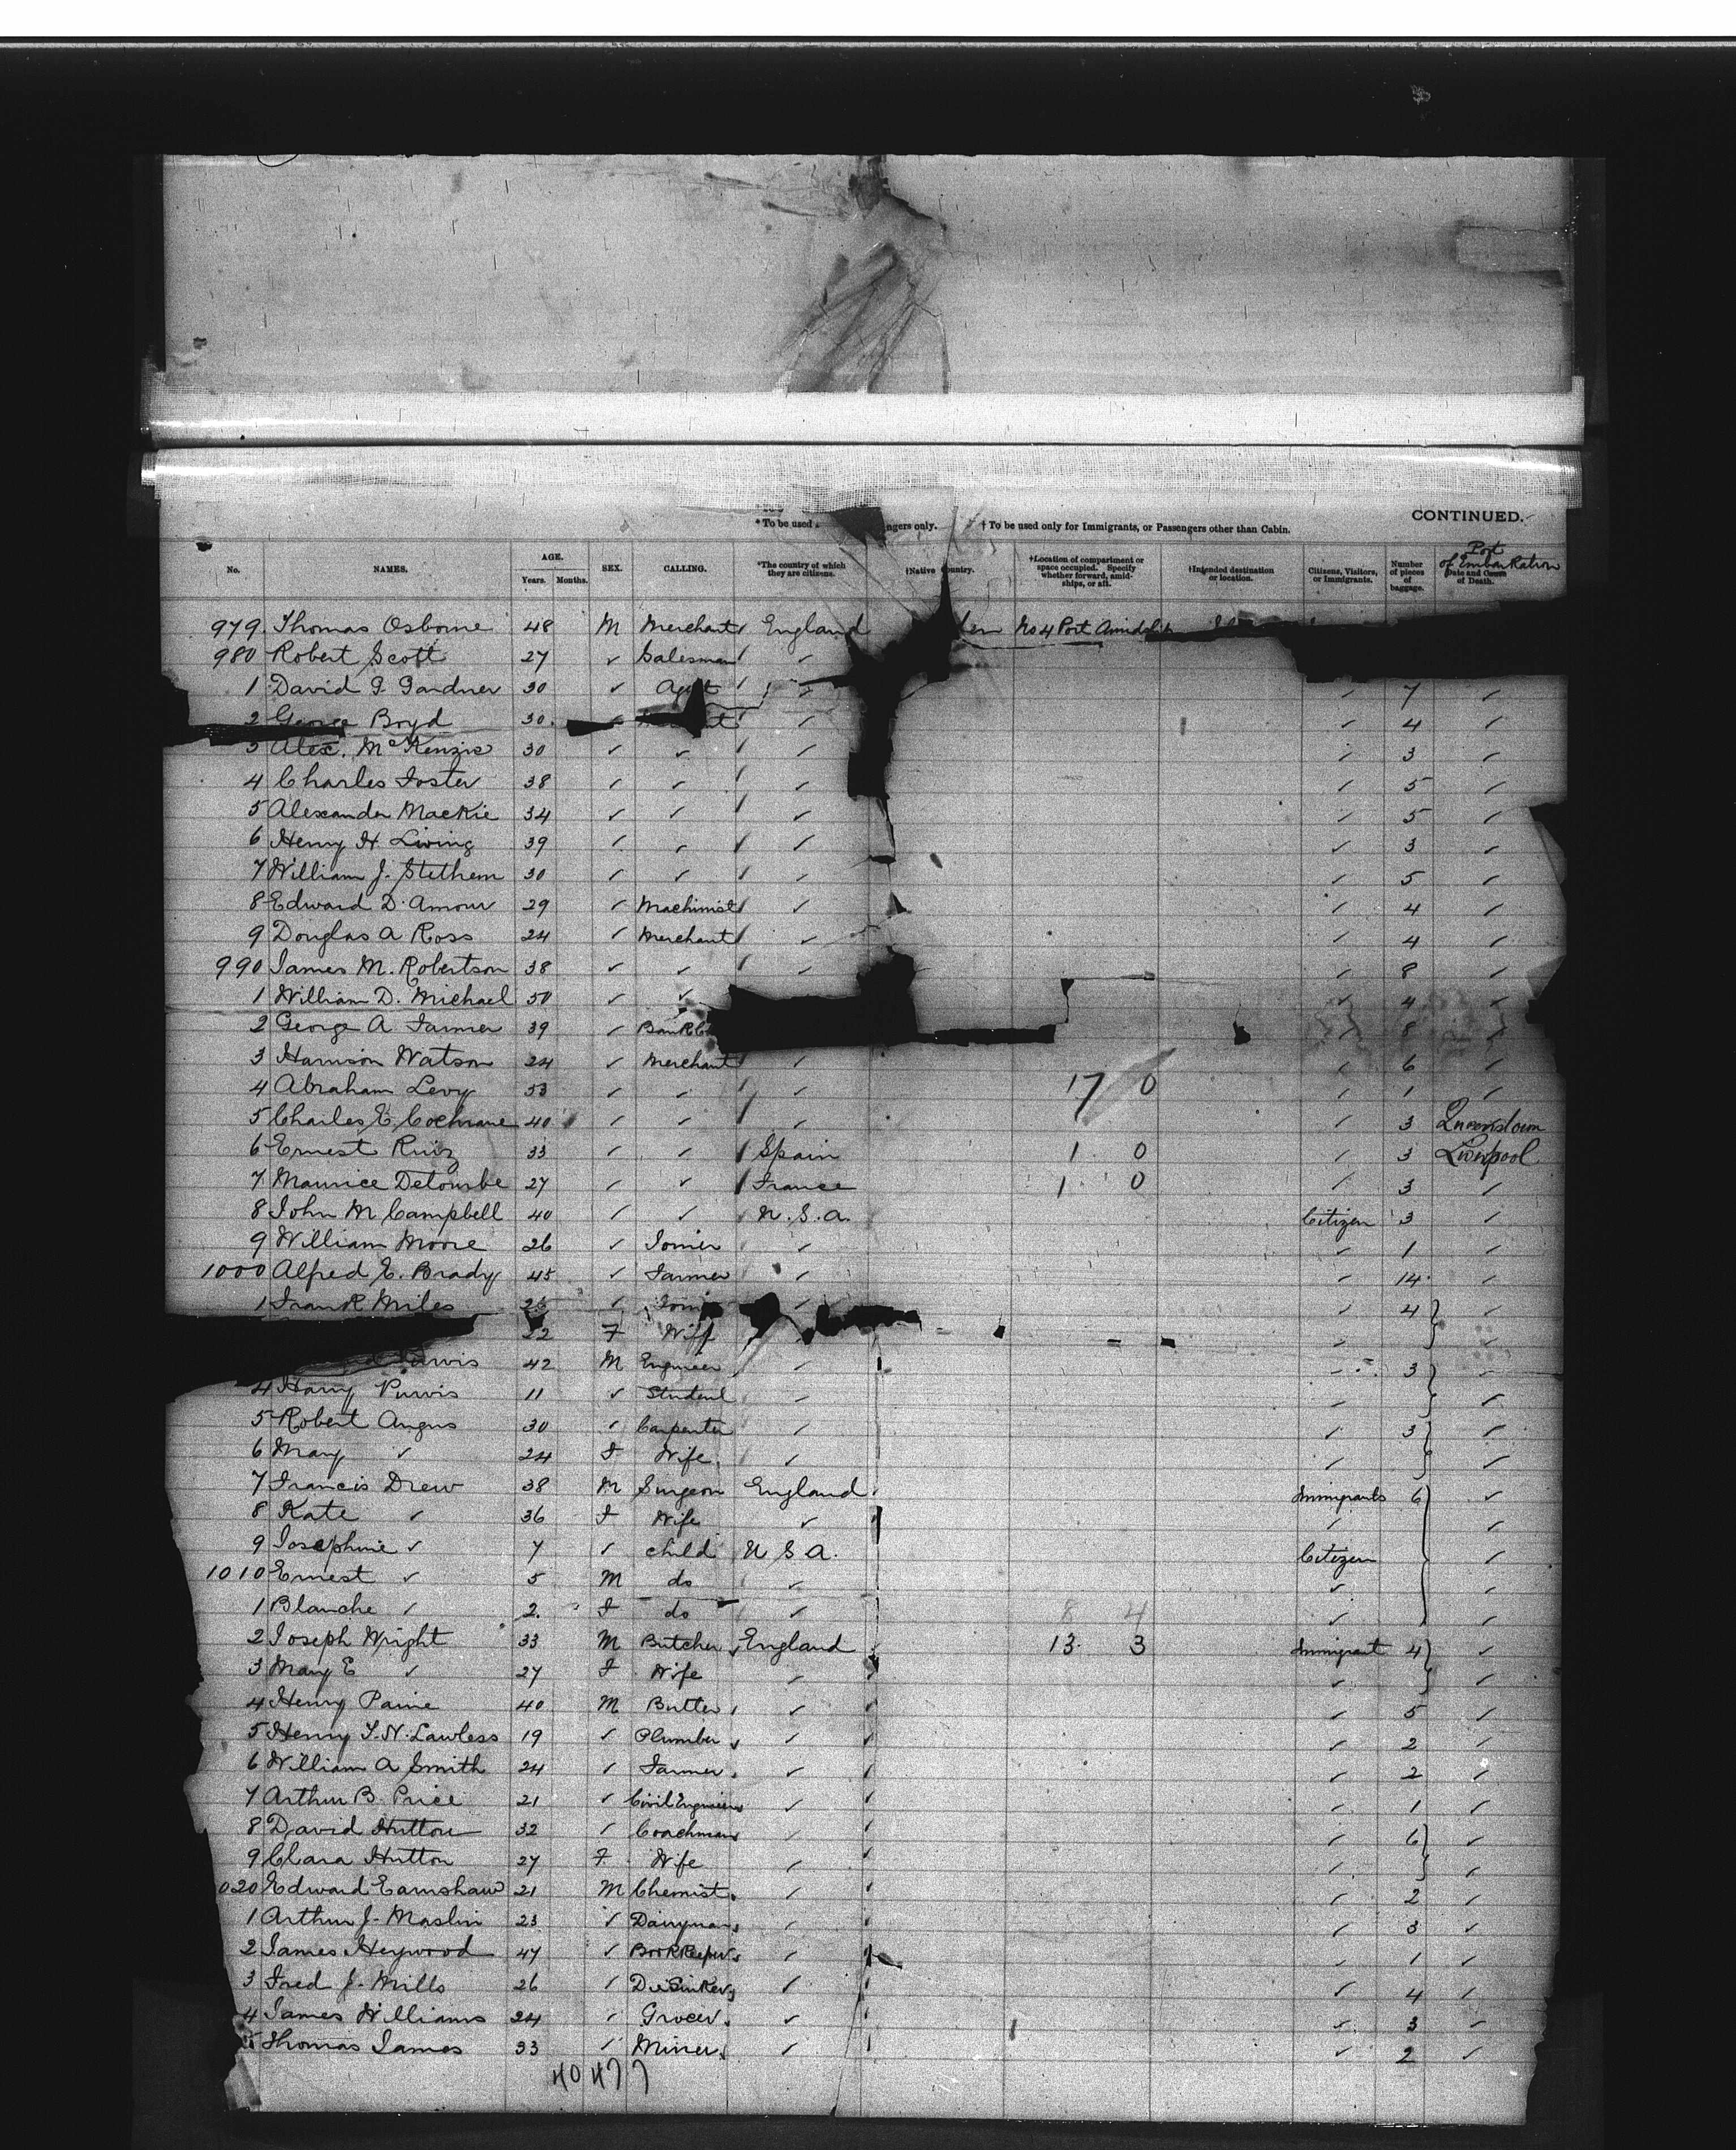 * To be used
ngers only.
† To be used only for Immigrants, or Passengers other than Cabin.
CONTINUED.
No. NAMES. AGE. Years. Months. SEX. CALLING. *The country of which they are citizens. †Native Country. †Location of compartment or space occupied. Specify whether forward, amidships, or aft. †Intended destination or location. Citizens, Visitors, or Immigrants. Number of pieces of baggage. Port of Embarkation Date and Cause of Death.
979 Thomas Osborne 48 M Merchant England No 4 Port
980 Robert Scott 27 ✓ Salesman ✓
1 David G. Gardner 30 ✓ Agent ✓ ✓ 7 ✓
2 George Boyd 30 ✓ ✓ ✓ 4 ✓
3 Alex. McKenzie 30 ✓ ✓ ✓ ✓ 3 ✓
4 Charles Foster 38 ✓ ✓ ✓ ✓ 5 ✓
5 Alexander Mackie 34 ✓ ✓ ✓ ✓ 5 ✓
6 Henry H. Living 39 ✓ ✓ ✓ ✓ 3 ✓
7 William J. Stethem 30 ✓ ✓ ✓ ✓ 5 ✓
8 Edward D. Amour 29 ✓ Machinist ✓ ✓ 4 ✓
9 Douglas A Ross 24 ✓ Merchant ✓ ✓ 4 ✓
990 James M. Robertson 38 ✓ ✓ ✓ ✓ 8 ✓
1 William D. Michael 50 ✓ ✓ ✓ 4 ✓
2 George A Farmer 39 ✓ ✓ 8 ✓
3 Harrison Watson 24 ✓ Merchant ✓ ✓ 6 ✓
4 Abraham Levy 53 ✓ ✓ ✓ 17 0 ✓ 1 ✓
5 Charles E. Cochrane 40 ✓ ✓ ✓ ✓ 3 Queenstown
6 Ernest Ruiz 33 ✓ ✓ Spain 1 0 ✓ 3 Liverpool
7 Maurice Detourbe 27 ✓ ✓ France 1 0 ✓ 3 ✓
8 John M Campbell 40 ✓ ✓ U.S.A. Citizen 3 ✓
9 William Moore 26 ✓ Joiner ✓ ✓ 1 ✓
1000 Alfred E. Brady 45 ✓ Farmer ✓ ✓ 14 ✓
1 Frank Miles ✓ ✓ ✓ 4 ✓
22 F Wife ✓ ✓
42 M Engineer ✓ ✓ 3 ✓
4 Harry Purvis 11 ✓ Student ✓ ✓ ✓
5 Robert Angus 30 ✓ Carpenter ✓ ✓ 3 ✓
6 Mary ✓ 24 F Wife ✓ ✓ ✓
7 Francis Drew 38 M Surgeon England Immigrants 6 ✓
8 Kate ✓ 36 F Wife ✓ ✓ ✓
9 Josephine ✓ 7 ✓ child U S A. Citizen ✓
1010 Ernest ✓ 5 M do ✓ ✓ ✓
1 Blanche ✓ 2 F do ✓ 8 4 ✓ ✓
2 Joseph Wright 33 M Butcher England 13 3 Immigrant 4 ✓
3 Mary E ✓ 27 F Wife ✓ ✓ ✓
4 Henry Paine 40 M Butler ✓ ✓ 5 ✓
5 Henry T. N. Lawless 19 ✓ Plumber ✓ ✓ 2 ✓
6 William A Smith 24 ✓ Farmer ✓ ✓ 2 ✓
7 Arthur B. Price 21 ✓ Civil Engineer ✓ ✓ 1 ✓
8 David Hutton 32 ✓ Coachman ✓ ✓ 6 ✓
9 Clara Hutton 27 F Wife ✓ ✓ ✓
020 Edward Earnshaw 21 M Chemist ✓ ✓ 2 ✓
1 Arthur J. Maslin 23 ✓ Dairyman ✓ ✓ 3 ✓
2 James Heywood 47 ✓ Bookkeeper ✓ ✓ 1 ✓
3 Fred J. Mills 26 ✓ Die Sinker ✓ ✓ 4 ✓
4 James Williams 24 ✓ Grocer ✓ ✓ 3 ✓
5 Thomas James 33 ✓ Miner ✓ ✓ 2 ✓
40477